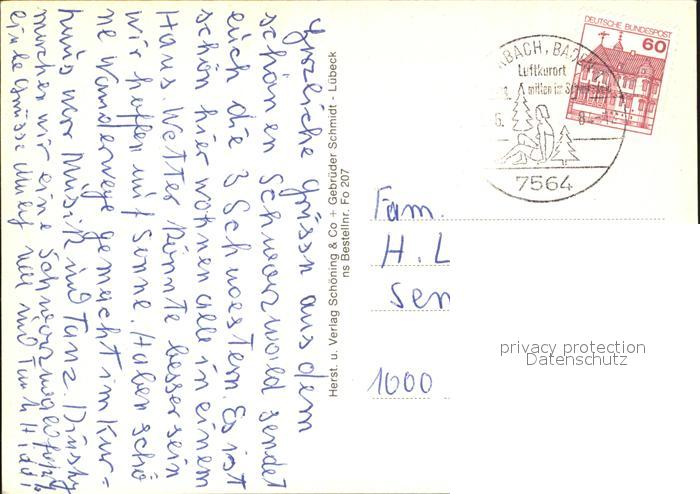 Herzliche Grüsse aus dem
schönen Schwarzwald sendet
euch die 3 Schwestern. Es ist
schön hier wohnen alle in einem
Haus. Wetter könnte besser sein
wir hoffen auf Sonne. Haben schö
ne Wanderwege gemacht im Kur=
haus war Musik und Tanz. Dinstg
machen wir eine Schwarzwaldfahrt
viele Grüsse
Herst. u. Verlag Schöning & Co + Gebrüder Schmidt - Lübeck
ns Bestellnr. Fo 207
DEUTSCHE BUNDESPOST
60
BACH, BADEN
Luftkurort
mitten im
7564
Fam.
H. L
Sen
1000
privacy protection
Datenschutz